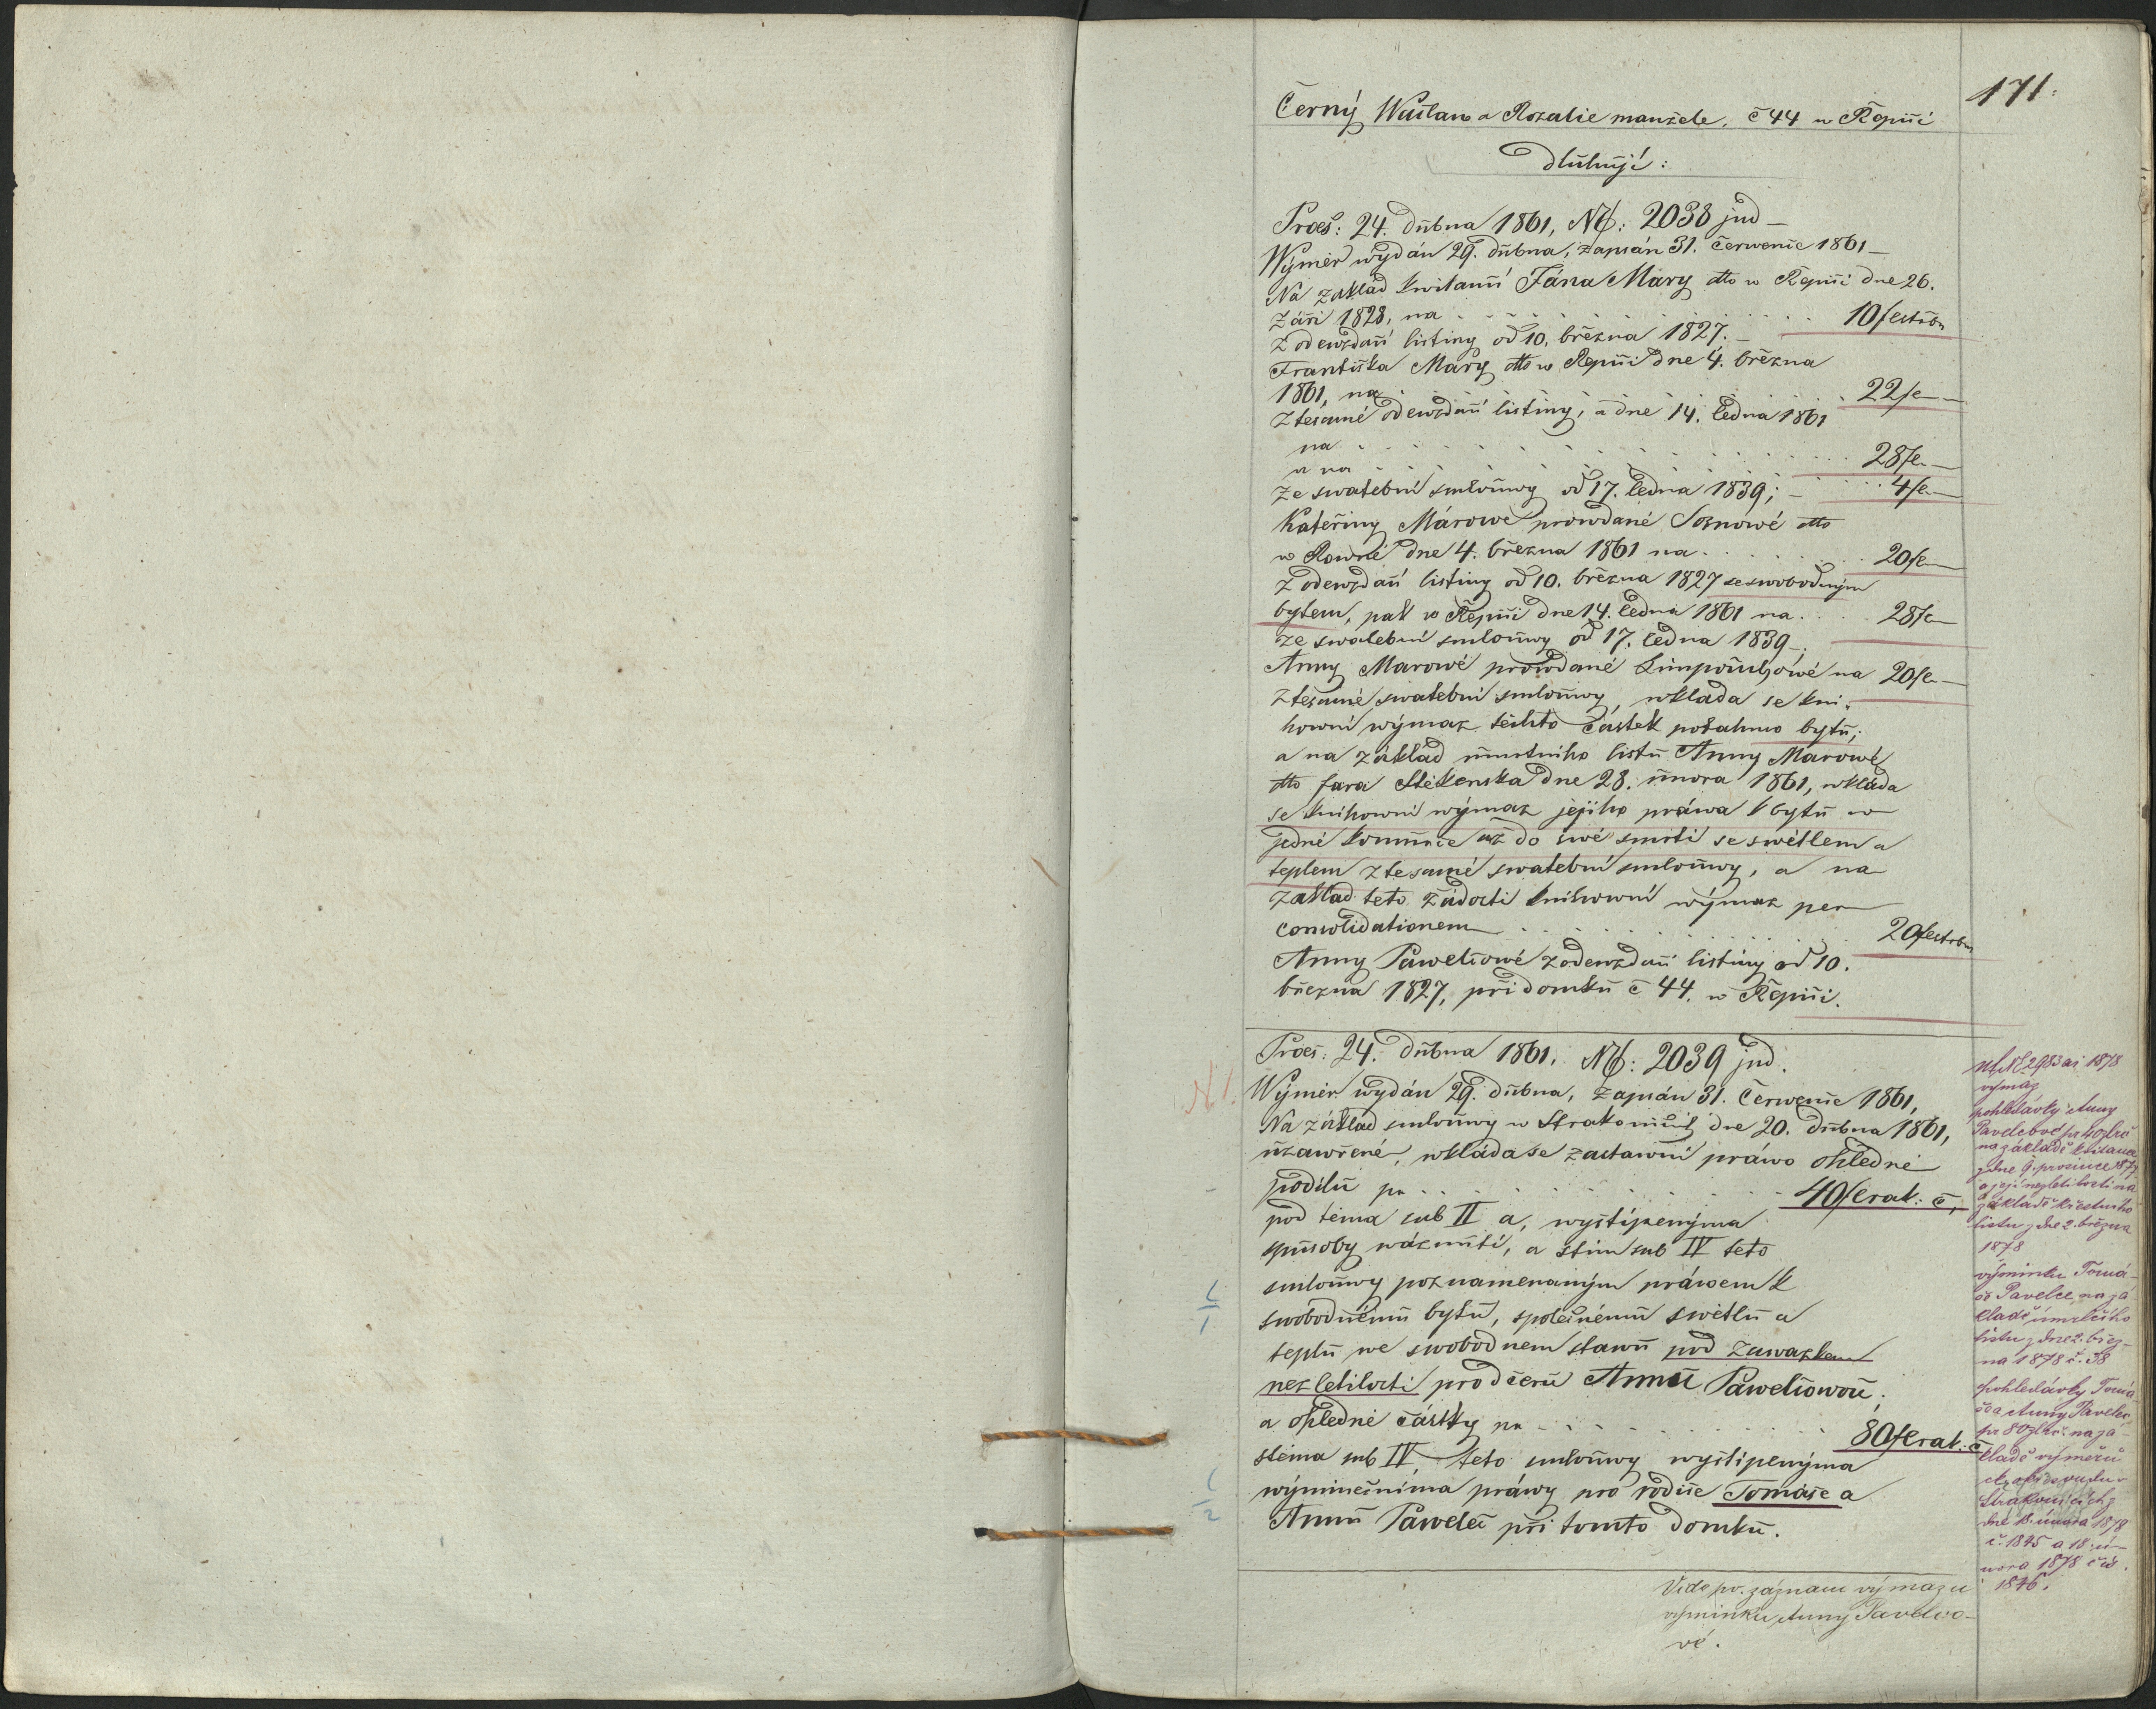 171.
Černý Wáclaw a Rozalie manžele, č 44 w Řepiči
dlužují:
Praes: 24. dubna 1861, NE: 2038 jud
Wýměr wydán 29. dubna, zapsán 31. Července 1861
Na základ kwitancí Jána Máry dtto w Řepiči dne 26.
září 1828, na 10f
z odewzdací listiny od 10. března 1827.
Františka Máry dtto w Řepiči dne 4. března
1861, na 22f
z tésamé odewzdací listiny, a dne 14. ledna 1861
na 28f
a na 4f
ze swatební smlouwy od 17. ledna 1839;
Kateřiny Márowé prowdané Sosnowé dtto
w Rowné dne 4. března 1861 na 20f
z odewzdací listiny od 10. března 1827 se swobodným
bytem, pak w Řepiči dne 14. ledna 1861 na 28f
ze swatební smlouwy od 17. ledna 1839
Anny Marowé prowdané na 20f
z tésamé swatební smlouwy, wkláda se kni-
howní wýmaz těchto částek potahmo bytu;
a na základ úmrtního listu Anny Marowé
dtto fara Štěkenska dne 28. února 1861, wkláda
se knihowní wýmaz jejího práwa k bytu w
jedné komůrce až do swé smrti se swětlem a
teplem z tesamé swatební smlouwy, a na
základ této žádosti knihowní wýmaz per
consolidationem 20f
Anny Pawelcowé z odewzdací listiny od 10.
března 1827, při domku č 44. w Řepiči.
Praes: 24. dubna 1861. NE: 2039 jud.
N 1.
Wýměr wydán 29. dubna, zapsán 31. Července 1861,
Na základ smlouwy w Strakonicích dne 20. dubna 1861,
uzawřené, wkláda se zástawní práwo ohledně
podílu pr 40f rak: č,
pod těma sub II a, wytknenýma
způsoby a stím sub IV této
smlouwy poznamenaným práwem k
swobodnému bytu, společnému swětlu a
teplu we swobodnem stawu pod záwazkem
nezletilosti pro dceru Annu Pawelcowou;
a ohledně částky pr 80f rak: č
stěma sub IV, této smlouwy
wýminečníma práwy pro rodiče Tomáše a
Annu Pawelec při tomto domku.
1
2
NE 2983 ai 1878
výmaz
pohledávky Anny
Pavelcové pr 40 zl
na základě kvitance
z dne 9. prosince 1877
a její nezletilosti na
základě křestního
listu z dne 2. března
1878
výminku Tomá-
še Pavelce na zá-
kladě úmrtního
listu z dne 2. břez-
na 1878 č. 38
pohledávky Tomá-
še a Anny Pavelec
pr 80 zl na zá-
kladě výměru
Strakonicích z
dne 18. února 1878
č. 1845 a 18. ú-
nora 1878 čís.
1846.
Vide záznam výmazu
výminku Anny Pavelco-
vé.